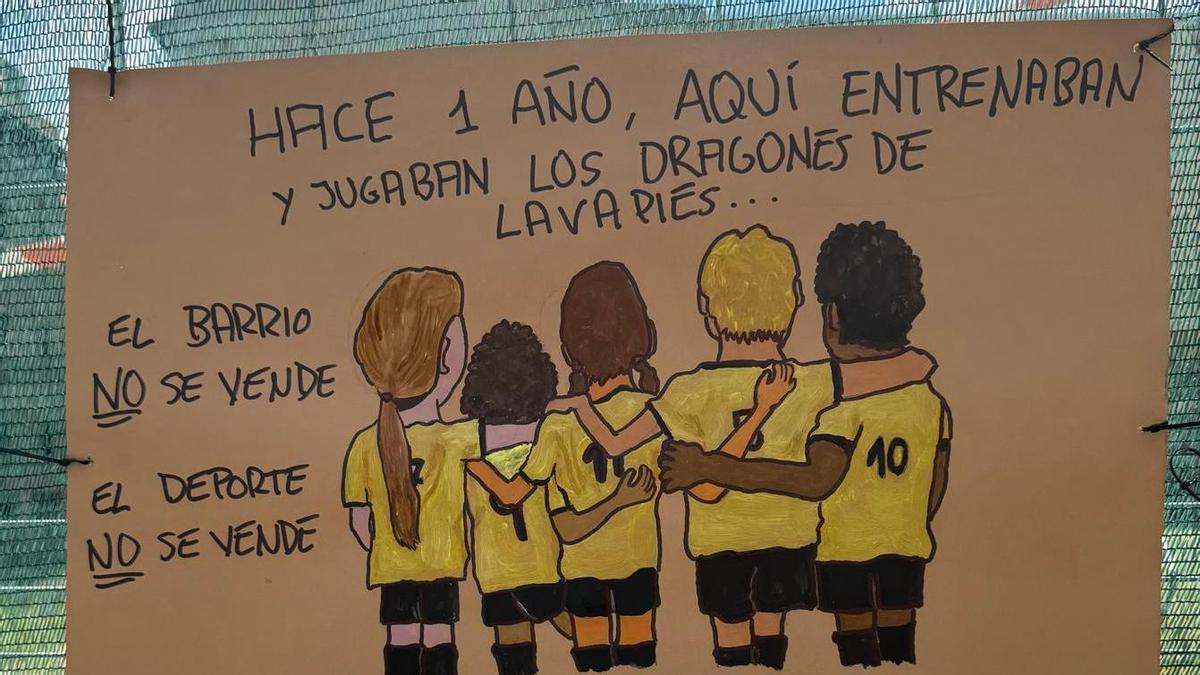 HACE 1 AÑO, AQUÍ ENTRENABAN
Y JUGABAN LOS DRAGONES DE
LAVAPIÉS...
EL BARRIO
NO SE VENDE
EL DEPORTE
NO SE VENDE
11
10